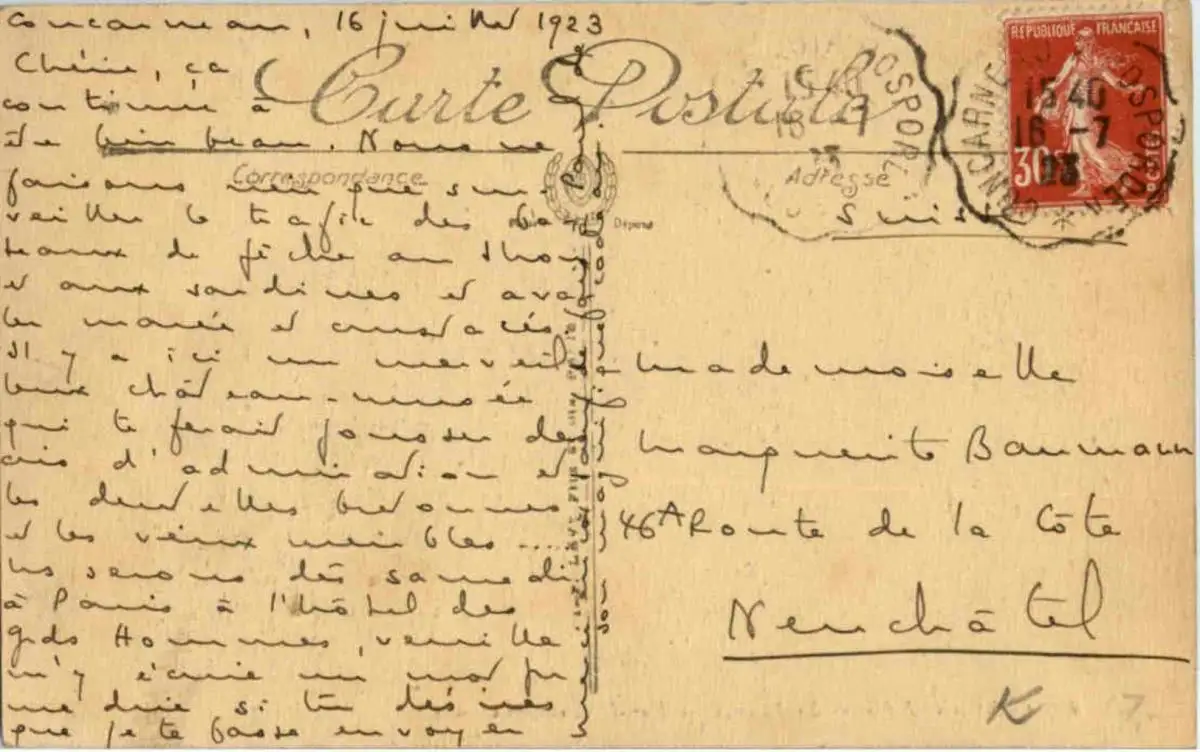 Concarneau, 16 juillet 1923
Chérie, ça
continue à
être bien beau. Nous ne
faisons rien que sur-
veiller le trafic des ba-
teaux de pêche au thon
et aux sardines et avaler
la marée et crustacés.
Il y a ici un merveil-
leux château-musée
qui te ferait pousser des
cris d'admiration et
les dentelles bretonnes
et les vieux meubles ....
ns serons dès samedi
à Paris à l'hôtel des
gds Hommes, veuille
m'y écrire un mot pr
me dire si tu désires
que je te fasse envoyer
Carte Postale
Correspondance
Adresse
Déposé
RÉPUBLIQUE FRANÇAISE
30
CONCARNEAU
ROSPORDEN
15 40
16 -7
23
Suisse
Mademoiselle
Marguerite Baumann
46A Route de la Côte
Neuchâtel
K
7